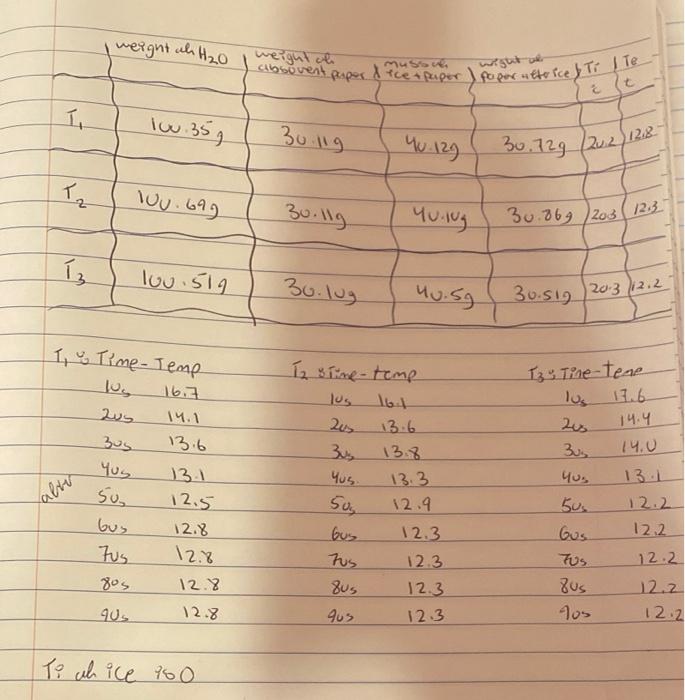 weight of H2O weight of absorvent paper mass of ice + paper wight of paper after ice Ti Te
T1 100.35g 30.11g 40.12g 30.72g 20.2 12.8
T2 100.69g 30.11g 40.10g 30.86g 20.3 12.3
T3 100.51g 30.10g 40.5g 30.51g 20.3 12.2
T1 : Time-Temp T2 : Time-temp T3 : Time-teme
10s 16.7 10s 16.1 10s 17.6
20s 14.1 20s 13.6 20s 14.4
30s 13.6 30s 13.8 30s 14.0
40s 13.1 40s 13.3 40s 13.1
50s 12.5 50s 12.9 50s 12.2
60s 12.8 60s 12.3 60s 12.2
70s 12.8 70s 12.3 70s 12.2
80s 12.8 80s 12.3 80s 12.2
90s 12.8 90s 12.3 90s 12.2
of ice